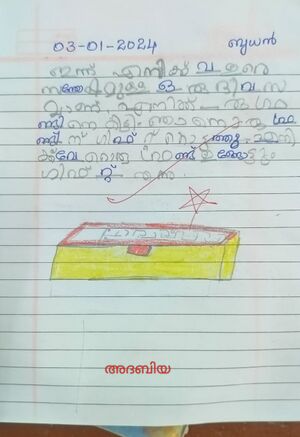 03-01-2024 ബുധൻ
ഇന്ന് എനിക്ക് വളരെ
സന്തോഷമുള്ള ഒരു ദിവസ
മാണ്. എനിക്ക് ഒരു ഫ്ര
ണ്ടിനെ കിട്ടി. ഞാനൊരു ഫ്ര
ണ്ടിന് ഗിഫ്റ്റ് കൊടുത്തു. എനി
ക്ക് വേറൊരു ഫ്രണ്ട്
ഗിഫ്റ്റ് തന്നു.
അദബിയ